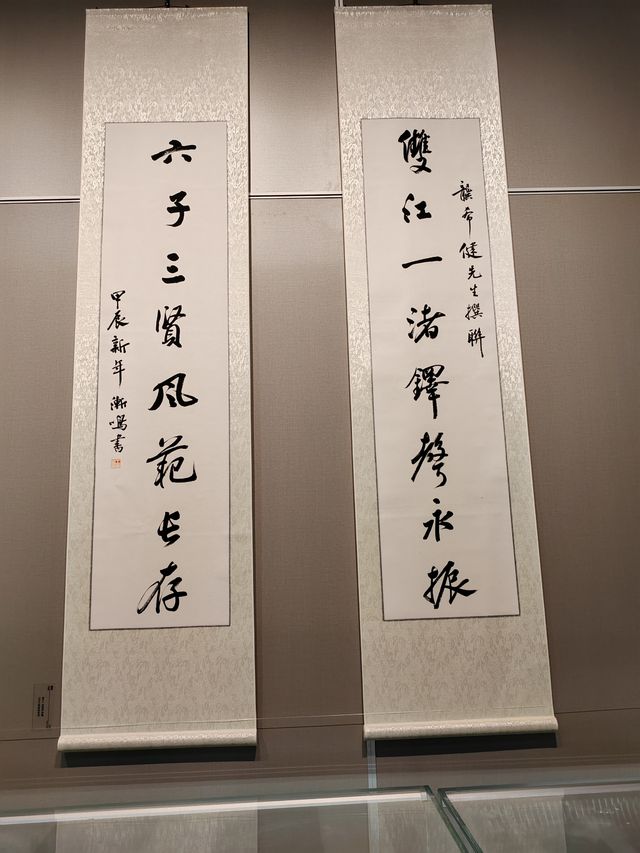 龔希健先生撰聯
雙江一渚鐸聲永振
六子三賢風範長存
甲辰新年漸鳴書